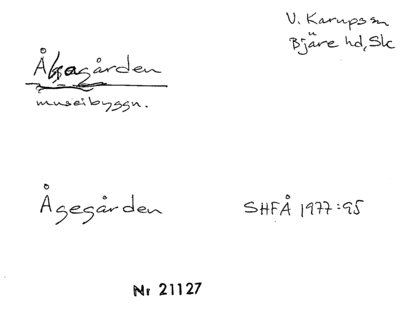 V. Karups sn
Bjäre hd, Sk
Åkagården
museibyggn.
Ågegården SHFÅ 1977:95
Nr 21127